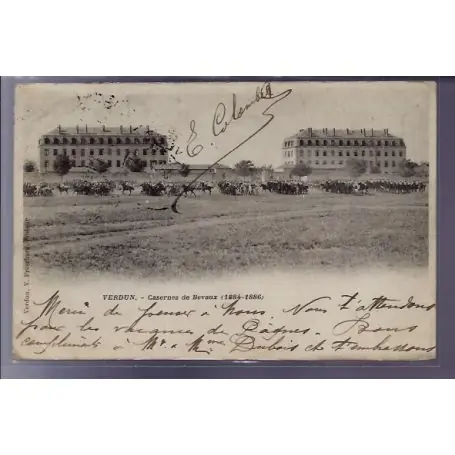 E. Colomb
VERDUN. - Casernes de Bevaux (1884-1886)
Merci de penser à nous. Nous t'attendons
pour les vacances de Pâques. Bons
compliments à Mr. & Mme Dubois et t'embrassons
Verdun, V.